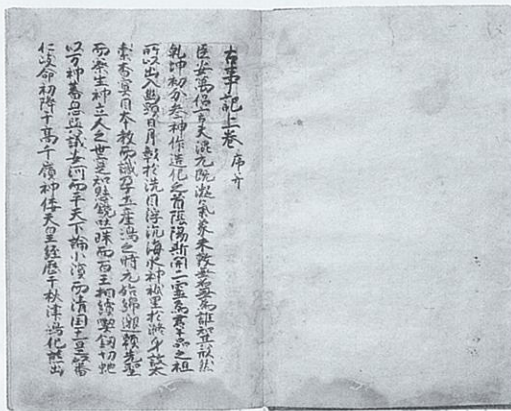 古事記上巻 序并
臣安萬侶言夫混元既凝氣象未效無名無為誰知其形然
乾坤初分参神作造化之首陰陽斯開二霊為群品之祖
所以出入幽顕日月彰於洗目浮沉海水神祇呈於滌身故太
素杳冥因本教而識孕土産嶋之時元始綿邈頼先聖
而察生神立人之世寔知懸鏡吐珠而百王相続喫釼切蛇
以万神蕃息與議安河而平天下論小濱而清国土是以番
仁岐命初降于高千嶺神倭天皇経歴于秋津嶋化熊出